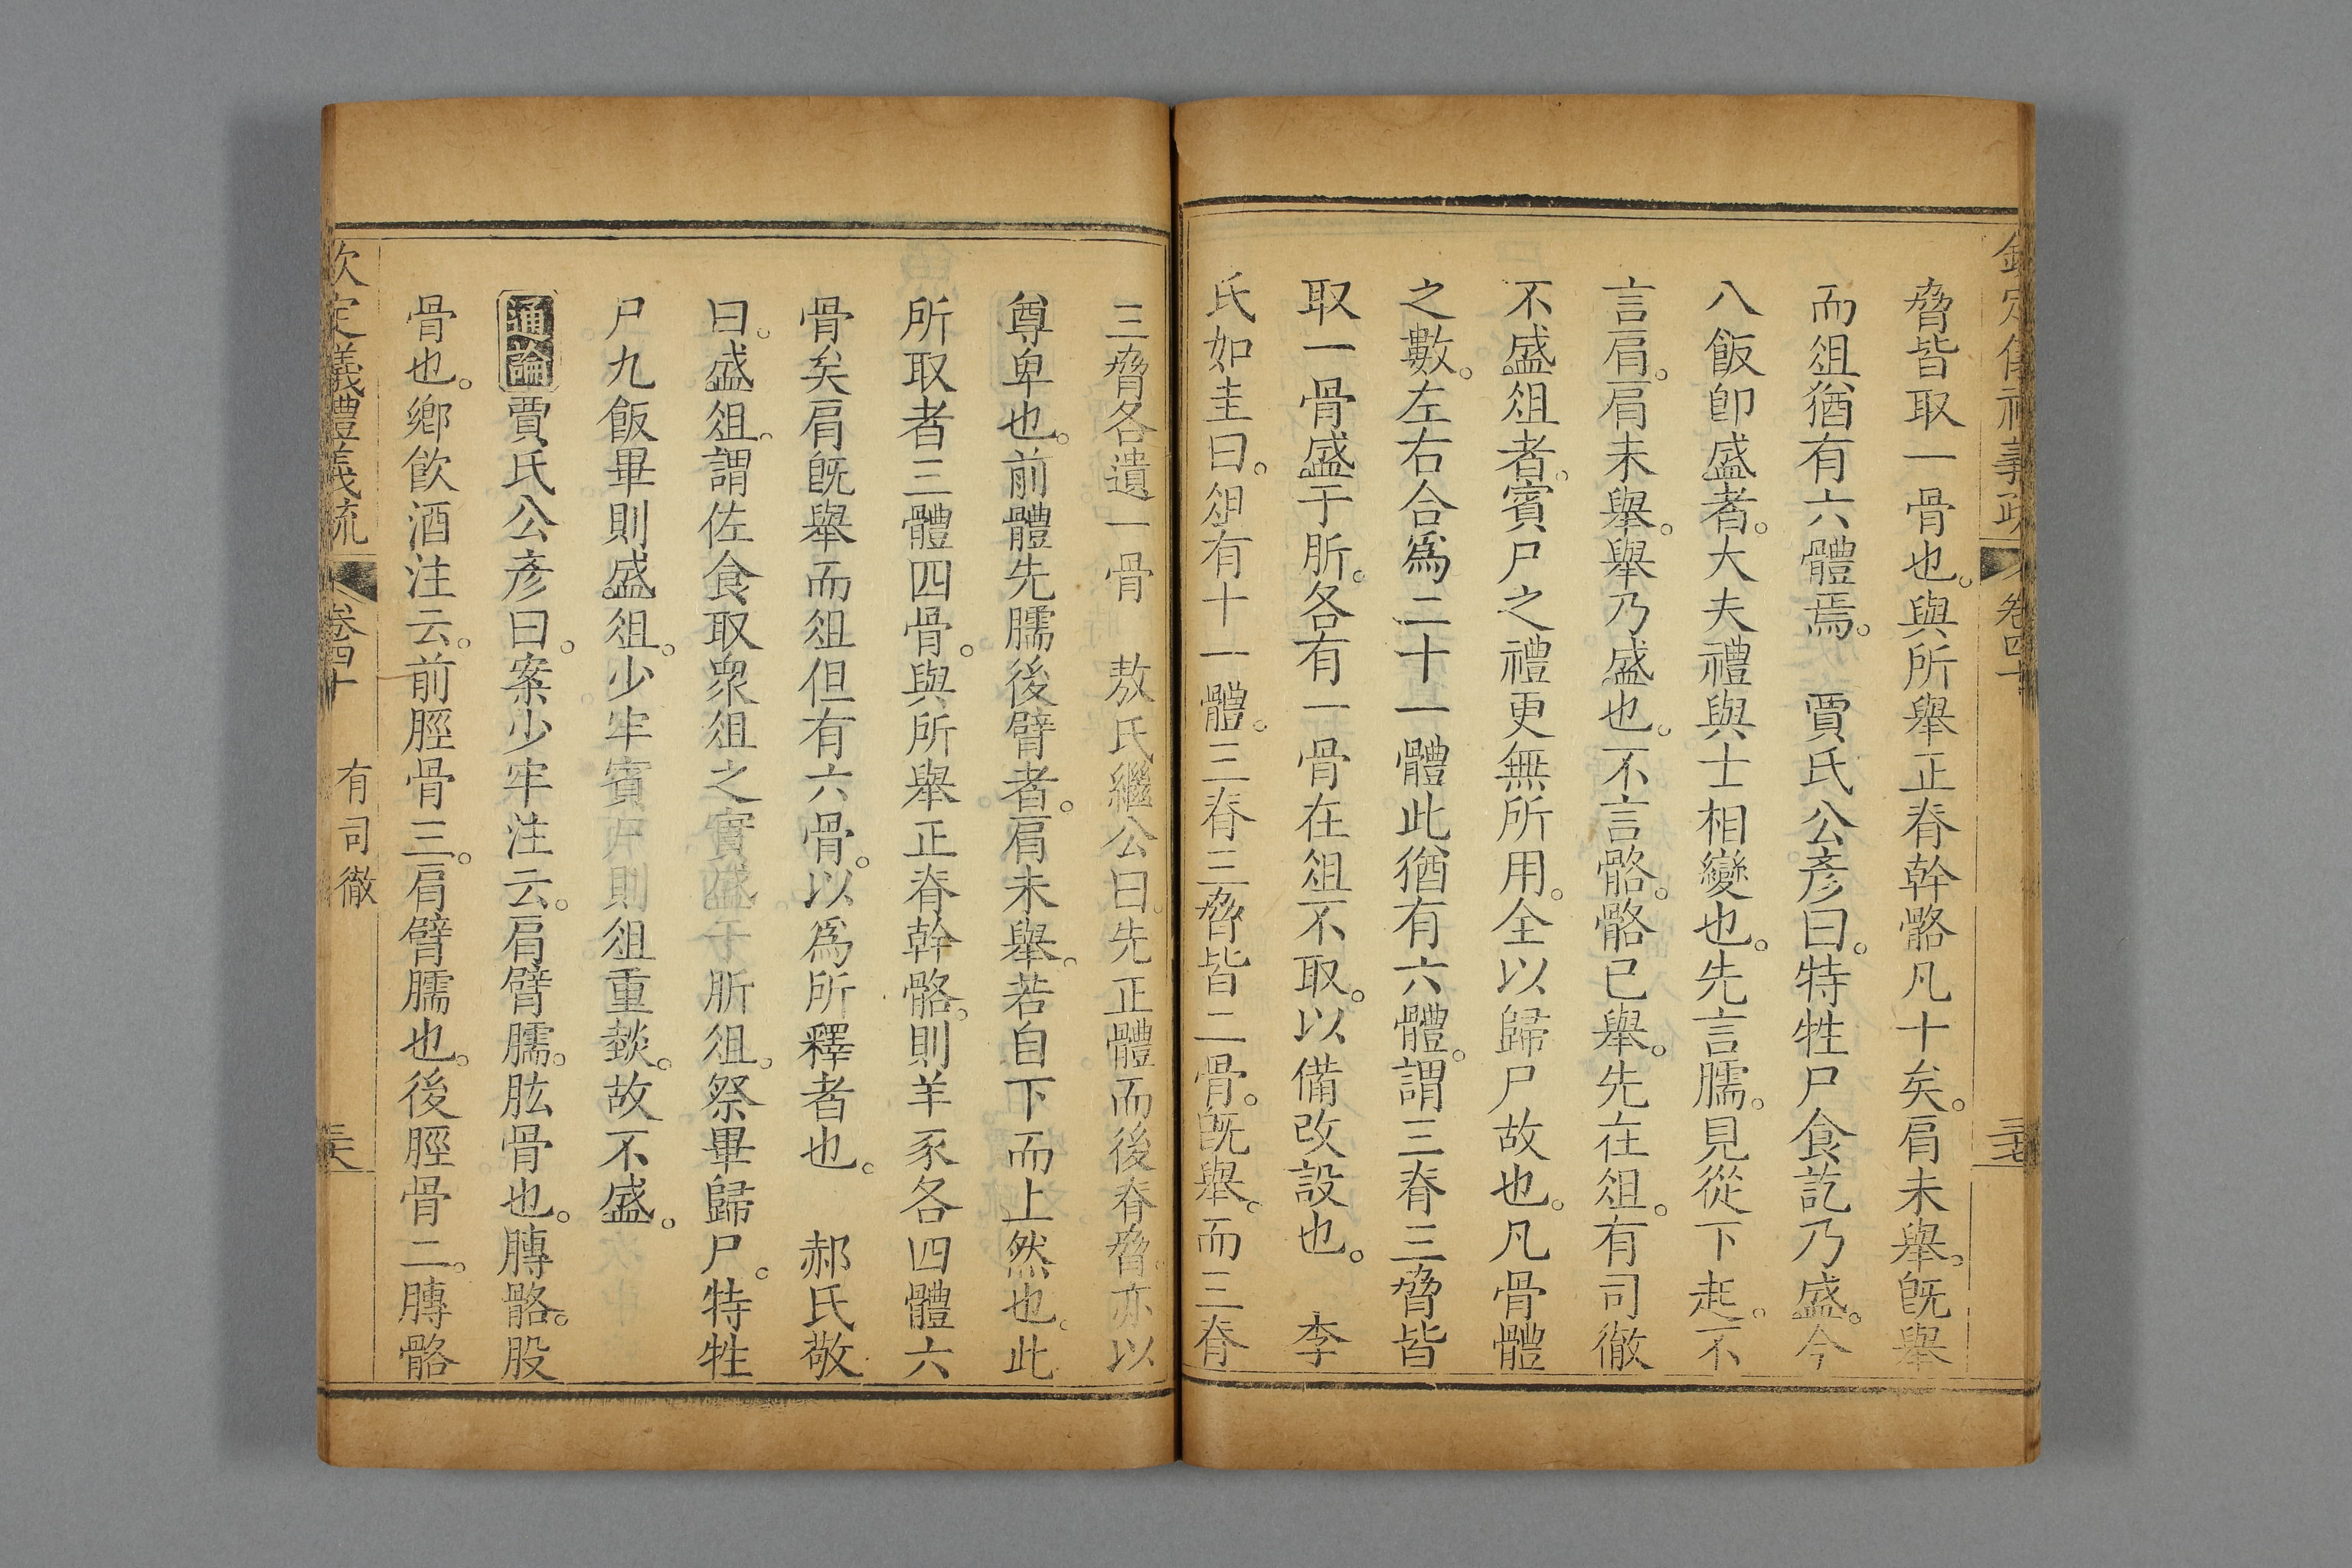 欽定儀禮義疏 卷四十
脅皆取一骨也。與所舉正脊幹骼凡十矣。肩未舉。旣舉
而俎猶有六體焉。 賈氏公彥曰。特牲尸食訖乃盛。今
八飯卽盛者。大夫禮與士相變也。先言臑。見從下起。不
言肩。肩未舉。舉乃盛也。不言骼。骼已舉。先在俎。有司徹
不盛俎者。賓尸之禮更無所用。全以歸尸故也。凡骨體
之數。左右合爲二十一體此猶有六體。謂三脊三脅皆
取一骨盛于肵。各有一骨在俎不取。以備改設也。 李
氏如圭曰。俎有十一體。三脊三脅皆二骨。旣舉。而三脊
三脅各遺一骨 敖氏繼公曰。先正體而後脊脅。亦以
尊卑也。前體先臑後臂者。肩未舉。若自下而上然也。此
所取者三體四骨。與所舉正脊幹骼。則羊豕各四體六
骨矣肩旣舉而俎但有六骨。以爲所釋者也。 郝氏敬
曰。盛俎。謂佐食取衆俎之實盛于肵俎。祭畢歸尸。特牲
尸九飯畢則盛俎。少牢賓尸則俎重燅。故不盛。
通論賈氏公彥曰。案少牢注云。肩臂臑。肱骨也。膞骼。股
骨也。鄉飲酒注云。前脛骨三。肩臂臑也。後脛骨二。膞骼
欽定儀禮義疏 卷四十 有司徹